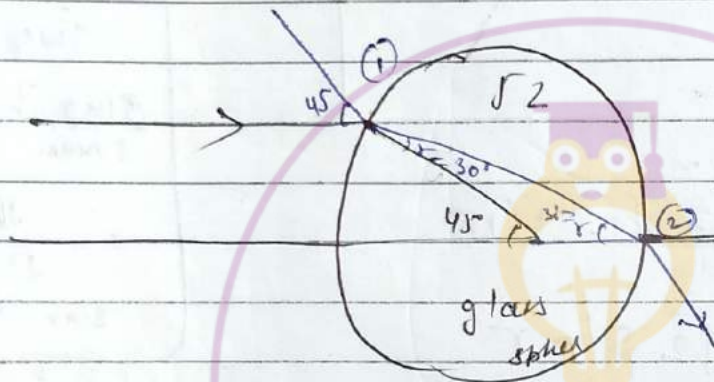 ①
45 √2
30°
45 r ②
glass
sphere